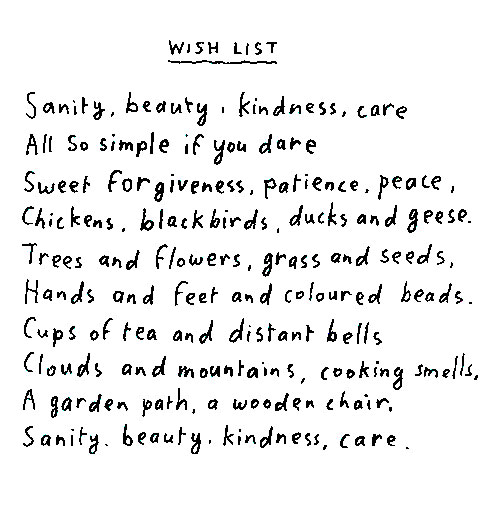 WISH LIST
Sanity, beauty, kindness, care
All so simple if you dare
Sweet forgiveness, patience, peace,
Chickens, blackbirds, ducks and geese.
Trees and flowers, grass and seeds,
Hands and feet and coloured beads.
Cups of tea and distant bells
Clouds and mountains, cooking smells,
A garden path, a wooden chair.
Sanity. beauty. kindness, care.